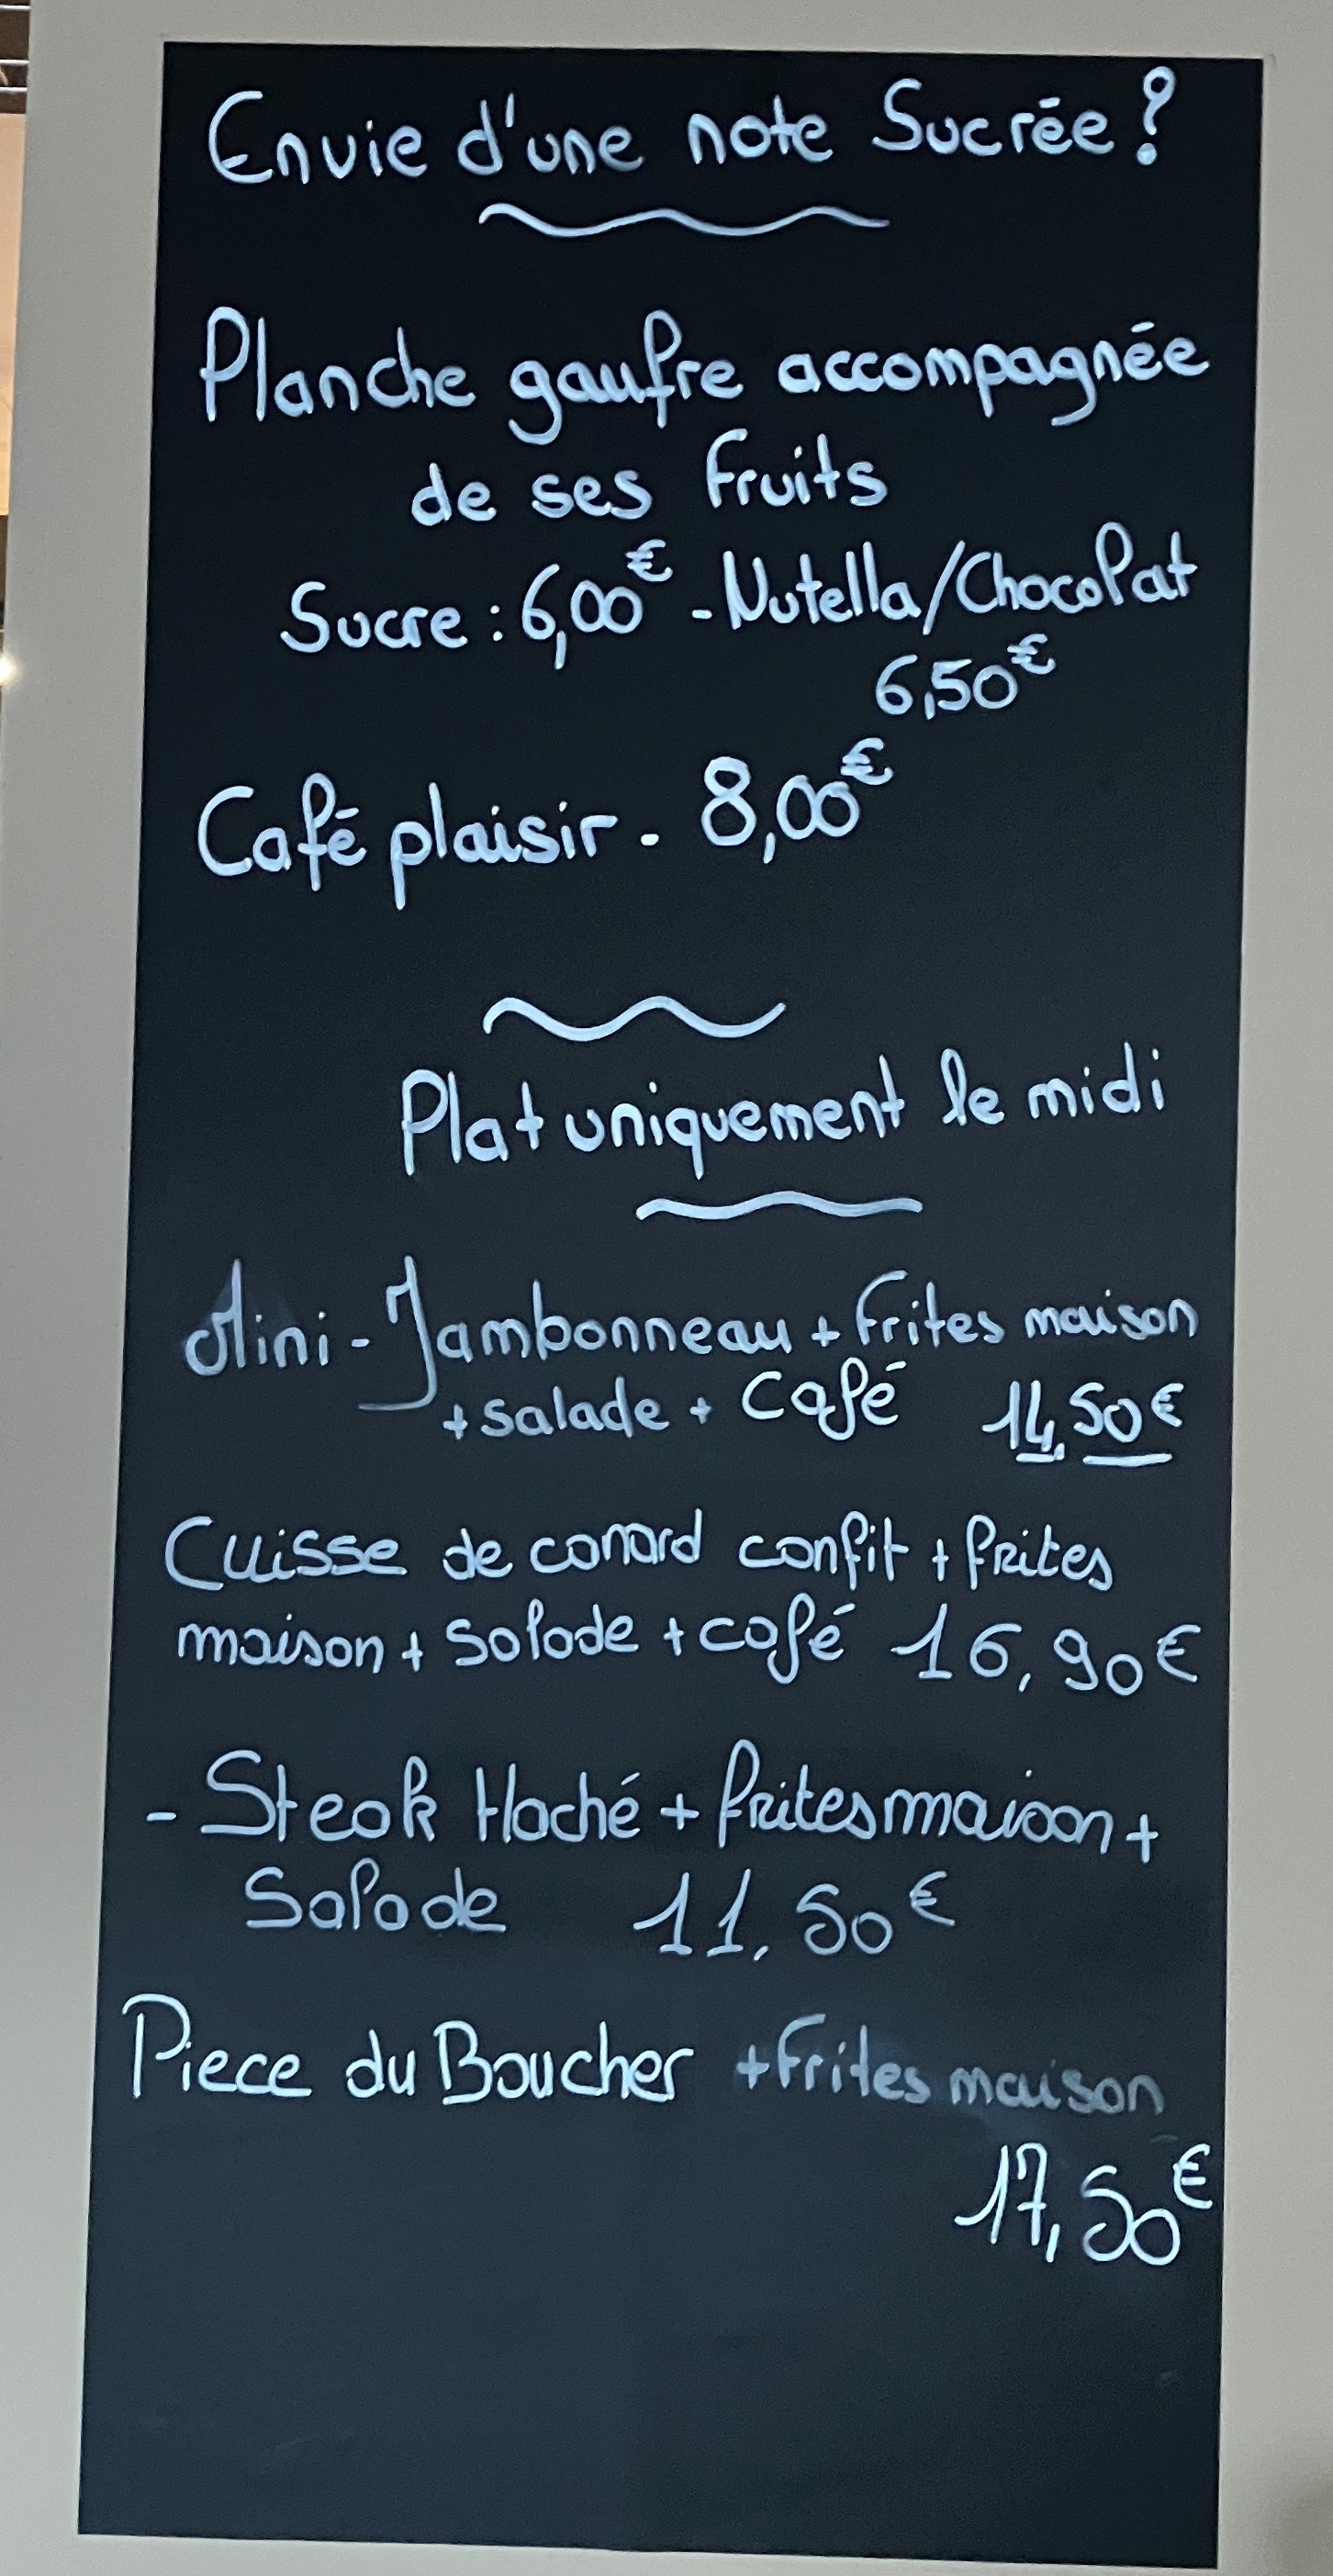 Envie d'une note Sucrée ?
Planche gaufre accompagnée
de ses fruits
Sucre : 6,00€ - Nutella/Chocolat
6,50€
Café plaisir - 8,00€
Plat uniquement le midi
Mini - Jambonneau + frites maison
+ salade + Café 14,50€
Cuisse de canard confit + frites
maison + Salade + café 16,90€
- Steak Haché + frites maison +
Salade 11,50€
Piece du Boucher + Frites maison
17,50€